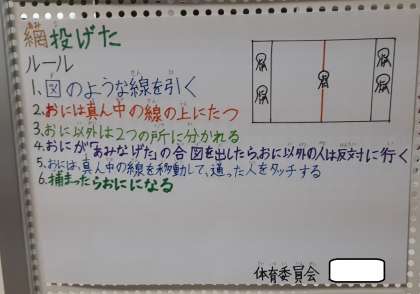 網投げた
ルール
1、図のような線を引く
2.おには真ん中の線の上にたつ
3.おに以外は2つの所に分かれる
4.おにが「あみなげた」の合図を出したら、おに以外の人は反対に行く
5.おには、真ん中の線を移動して、通った人をタッチする
6.捕まったらおにになる
体育委員会